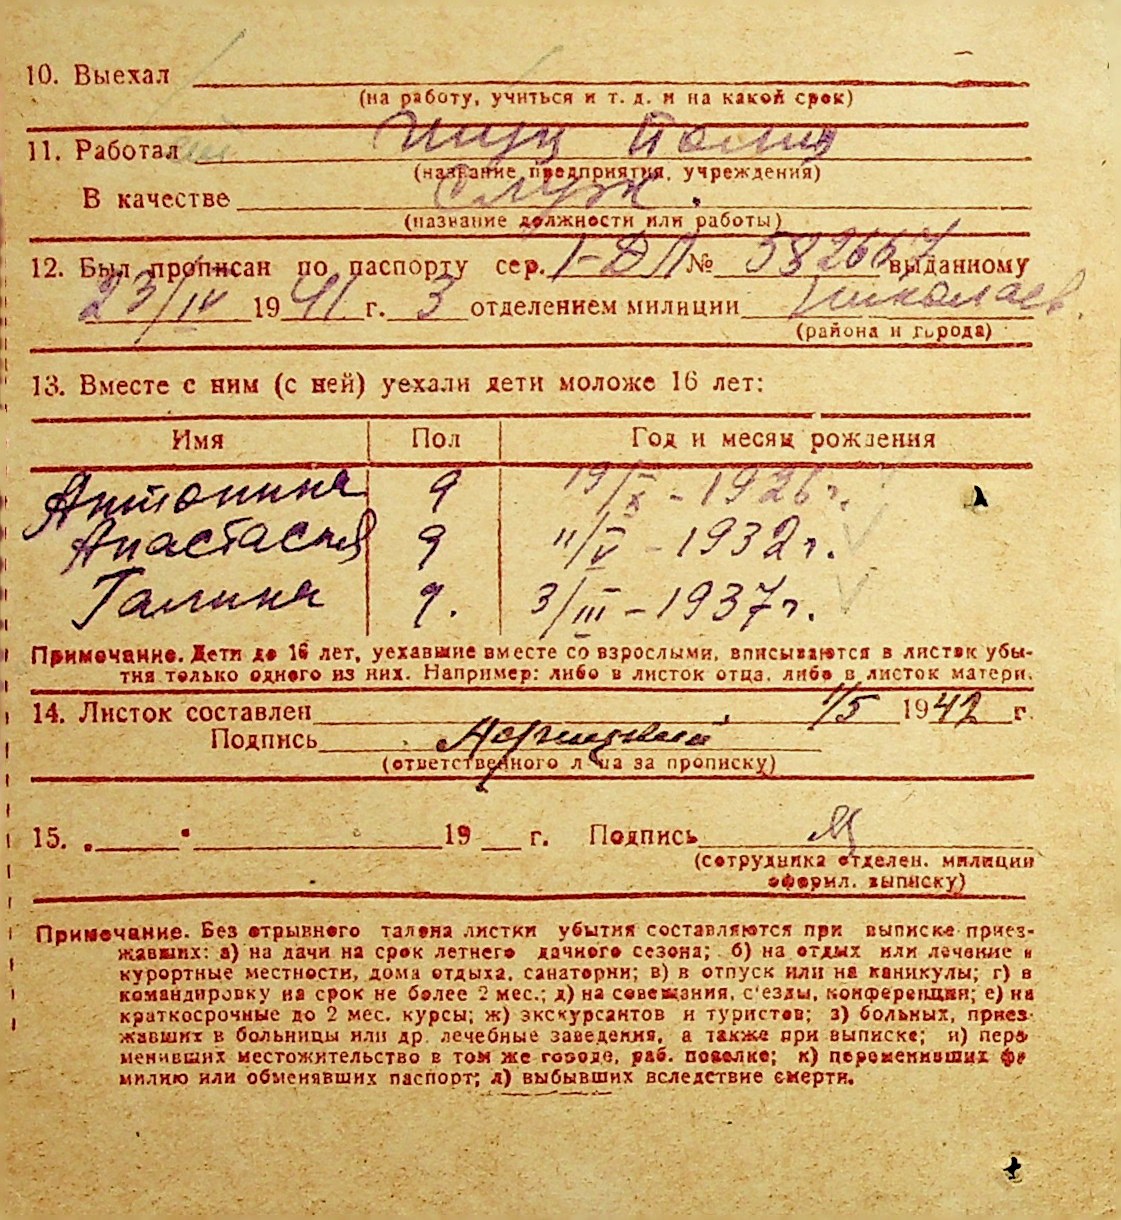 10. Выехал
(на работу, учиться и т. д. и на какой срок)
11. Работал
(название предприятия, учреждения)
В качестве служ.
(название должности или работы)
12. Был прописан по паспорту сер. I-ДЛ № 582667 выданному
23/IV 1941 г. 3 отделением милиции Николаев.
(района и города)
13. Вместе с ним (с ней) уехали дети моложе 16 лет:
Имя Пол Год и месяц рождения
Антонина 9 19/X - 1926 г.
Анастасия 9 11/V - 1932 г.
Галина 9. 3/III - 1937 г.
Примечание. Дети до 16 лет, уехавшие вместе со взрослыми, вписываются в листок убы-
тия только одного из них. Например: либо в листок отца, либо в листок матери.
14. Листок составлен 1/5 1942 г.
Подпись
(ответственного лица за прописку)
15. 19 г. Подпись
(сотрудника отделен. милиции
оформл. выписку)
Примечание. Без отрывного талона листки убытия составляются при выписке приез-
жавших: а) на дачи на срок летнего дачного сезона; б) на отдых или лечение в
курортные местности, дома отдыха, санатории; в) в отпуск или на каникулы; г) в
командировку на срок не более 2 мес.; д) на совещания, с'езды, конференции; е) на
краткосрочные до 2 мес. курсы; ж) экскурсантов и туристов; з) больных, приез-
жавших в больницы или др. лечебные заведения, а также при выписке; и) пере
менивших местожительство в том же городе, раб. поселке; к) переменивших фа
милию или обменявших паспорт; л) выбывших вследствие смерти.